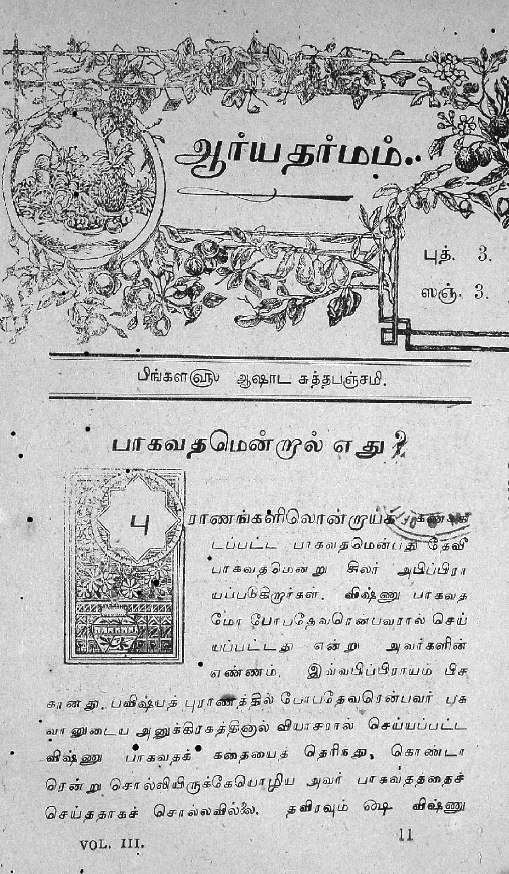 ஆர்யதர்மம்..
புத். 3.
ஸஞ். 3.
பிங்கள௵ ஆஷாட சுத்தபஞ்சமி.
பாகவதமென்றால் எது?
புராணங்களிலொன்றாய்க்
டப்பட்ட பாகவதமென்பது தேவீ
பாகவதமென்று சிலர் அபிப்பிரா
யப்படுகிறார்கள். விஷ்ணு பாகவத
மோ போபதேவரென்பவரால் செய்
யப்பட்டது என்று அவர்களின்
எண்ணம். இவ்வபிப்பிராயம் பிச
கானது. பவிஷ்யத் புராணத்தில் போபதேவரென்பவர் பக
வானுடைய அனுக்கிரகத்தினால் வியாசரால் செய்யப்பட்ட
விஷ்ணு பாகவதக் கதையைத் தெரிந்து, கொண்டா
ரென்று சொல்லியிருக்கேயொழிய அவர் பாகவதத்தைச்
செய்ததாகச் சொல்லவில்லை. தவிரவும் ௸ விஷ்ணு
VOL. III.
11